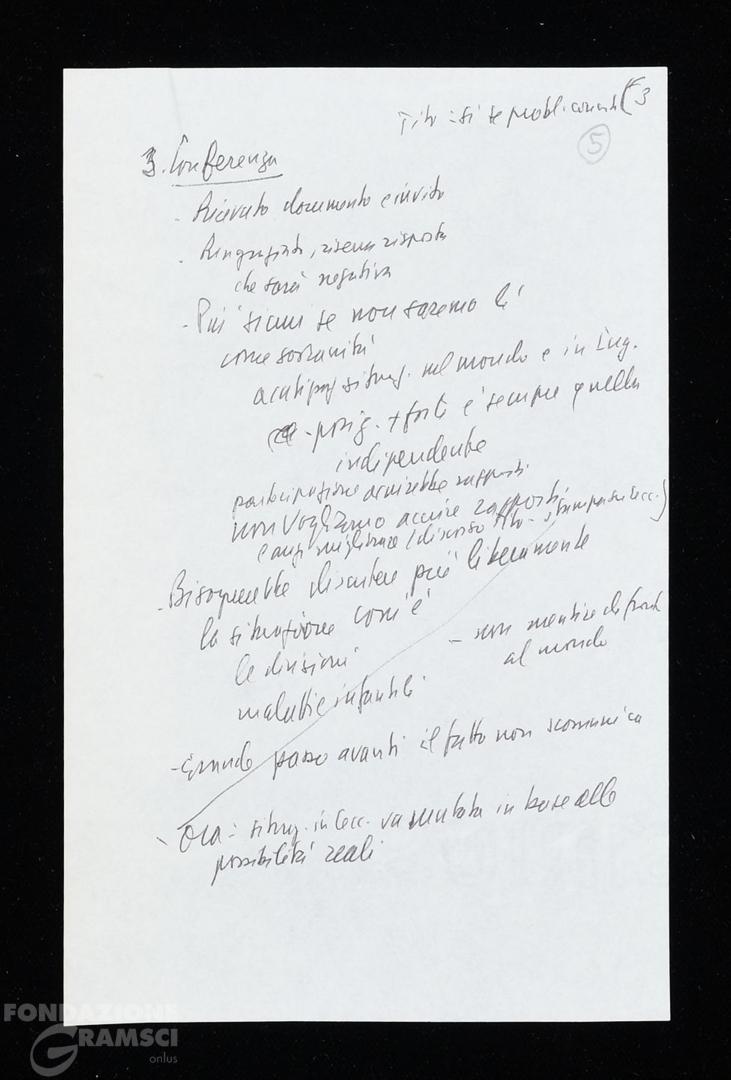 Tito = si se probl. comuni (F3
5
3. Conferenza
- Ricevuto documento e invito
- Ringraziato, riserva risposta
che sarà negativa
- Più siamo se non saremo lì
come sovranità
situaz. nel mondo e in Iug.
- posiz. + forte è sempre quella
indipendente
partecipazione acuirebbe rapporti
non vogliamo acuire rapporti
e anzi migliorare (discorso Tito - stampa su Cec.)
- Bisognerebbe discutere più liberamente
la situazione com'è
le divisioni
- non mentire di fronte
al mondo
malattie infantili
- Grande passo avanti il fatto non scomunica
- Ora: situaz. in Cec. va mutata in base alle
possibilità reali
FONDAZIONE
GRAMSCI
onlus